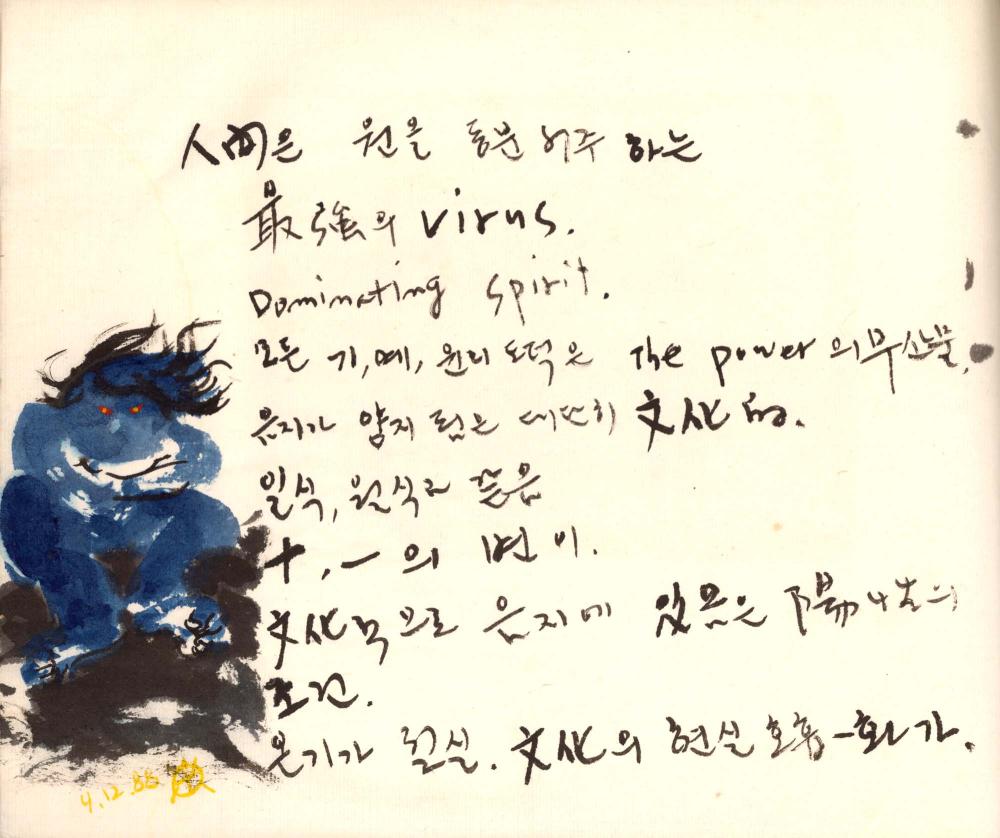 人間은 원을 하는
最強의 virus.
Dominating spirit.
모든 기, 예, 원리 도덕은 The power 의 부산물,
음지가 양지 됨은 文化的.
일식, 월식과 같음
十, 一의 변이.
文化적으로 음지에 있음은 陽性의
조건.
온기가 절실. 文化의 현실 화가.
4.12.88